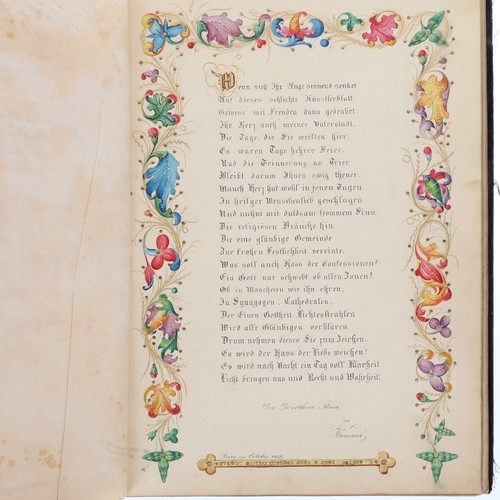 Wenn sich Ihr Auge sinnend senket
Auf dieses schlichte Künstlerblatt,
Gewiss mit Freuden dann gedenket
Ihr Herz auch meiner Vaterstadt.
Die Tage, die Sie weilten hier,
Es waren Tage hehrer Feier,
Und die Erinnerung an Trier
Bleibt darum Ihnen ewig theuer.
Manch Herz hat wohl in jenen Tagen
In heil'ger Menschenlieb geschlagen
Und nahm mit duldsam frommem Sinn
Die religiösen Bräuche hin,
Die eine gläubige Gemeinde
Zur frohen Festlichkeit vereinte.
Was soll auch Hass der Confessionen?
Ein Gott nur schwebt ob allen Zonen!
Ob in Moscheen wir ihn ehren,
In Synagogen, Cathedralen,
Der Einen Gottheit Lichtesstrahlen
Wird alle Gläubigen verklären.
Drum nehmen dieses Sie zum Zeichen,
Es wird der Hass der Liebe weichen!
Es wird nach Nacht ein Tag voll Klarheit
Licht bringen uns und Recht und Wahrheit.
Dorothea
von
Trier im October